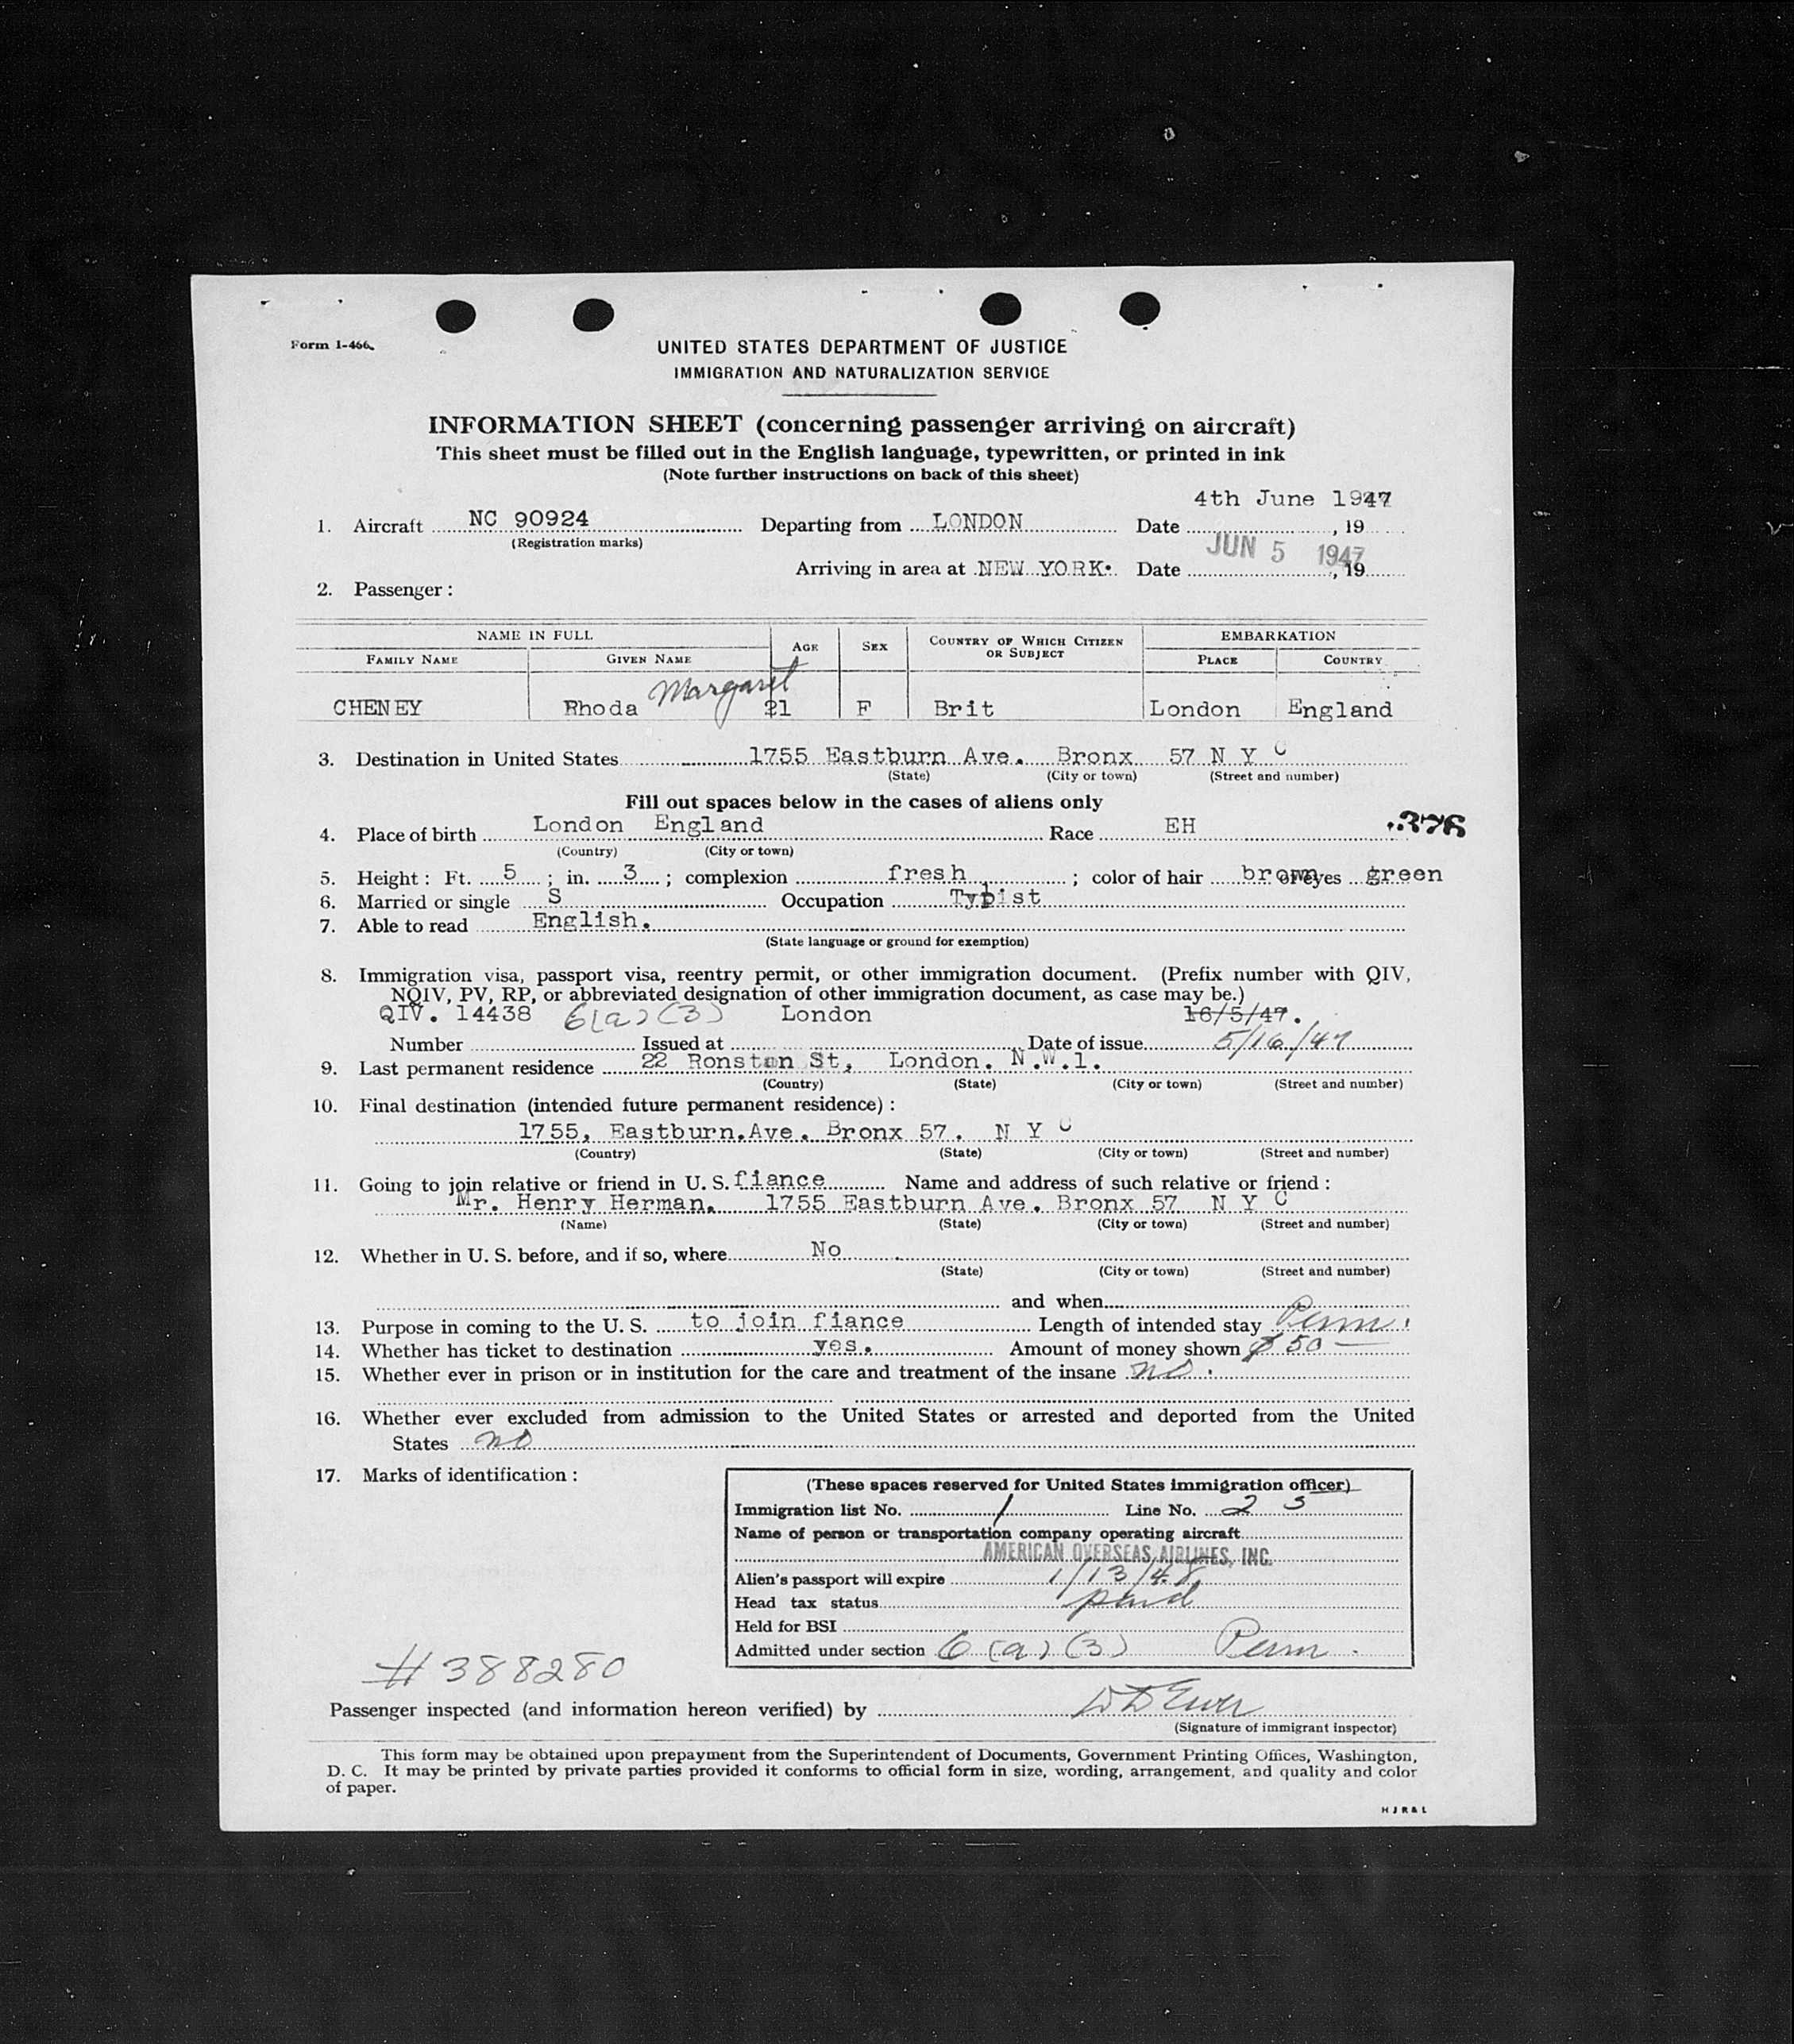 Form I-466
UNITED STATES DEPARTMENT OF JUSTICE
IMMIGRATION AND NATURALIZATION SERVICE
INFORMATION SHEET (concerning passenger arriving on aircraft)
This sheet must be filled out in the English language, typewritten, or printed in ink
(Note further instructions on back of this sheet)
4th June 1947
1. Aircraft NC 90924 Departing from LONDON Date , 19
(Registration marks) JUN 5 1947
Arriving in area at NEW YORK. Date , 19
2. Passenger :
NAME IN FULL AGE SEX COUNTRY OF WHICH CITIZEN OR SUBJECT EMBARKATION
FAMILY NAME GIVEN NAME PLACE COUNTRY
CHENEY Rhoda Margaret 21 F Brit London England
3. Destination in United States 1755 Eastburn Ave. Bronx 57 N Y C
(State) (City or town) (Street and number)
Fill out spaces below in the cases of aliens only
4. Place of birth London England Race EH .376
(Country) (City or town)
5. Height : Ft. 5 ; in. 3 ; complexion fresh ; color of hair brown of eyes green
6. Married or single S Occupation Typist
7. Able to read English.
(State language or ground for exemption)
8. Immigration visa, passport visa, reentry permit, or other immigration document. (Prefix number with QIV,
NQIV, PV, RP, or abbreviated designation of other immigration document, as case may be.)
QIV. 14438 6(a)(3) London 16/5/47.
Number Issued at Date of issue 5/16/47
9. Last permanent residence 22 Ronstan St, London. N.W.1.
(Country) (State) (City or town) (Street and number)
10. Final destination (intended future permanent residence) :
1755, Eastburn.Ave. Bronx 57. N Y C
(Country) (State) (City or town) (Street and number)
11. Going to join relative or friend in U. S. fiance Name and address of such relative or friend :
Mr. Henry Herman. 1755 Eastburn Ave. Bronx 57 N Y C
(Name) (State) (City or town) (Street and number)
12. Whether in U. S. before, and if so, where No
(State) (City or town) (Street and number)
and when
13. Purpose in coming to the U. S. to join fiance Length of intended stay Perm.
14. Whether has ticket to destination yes. Amount of money shown $ 50 —
15. Whether ever in prison or in institution for the care and treatment of the insane no.
16. Whether ever excluded from admission to the United States or arrested and deported from the United
States no
17. Marks of identification :
(These spaces reserved for United States immigration officer)
Immigration list No. 1 Line No. 23
Name of person or transportation company operating aircraft
AMERICAN OVERSEAS AIRLINES, INC.
Alien's passport will expire 1/13/48
Head tax status paid
Held for BSI
Admitted under section 6(a)(3) Perm.
#388280
Passenger inspected (and information hereon verified) by
(Signature of immigrant inspector)
This form may be obtained upon prepayment from the Superintendent of Documents, Government Printing Offices, Washington,
D. C. It may be printed by private parties provided it conforms to official form in size, wording, arrangement, and quality and color
of paper.
H J R & L